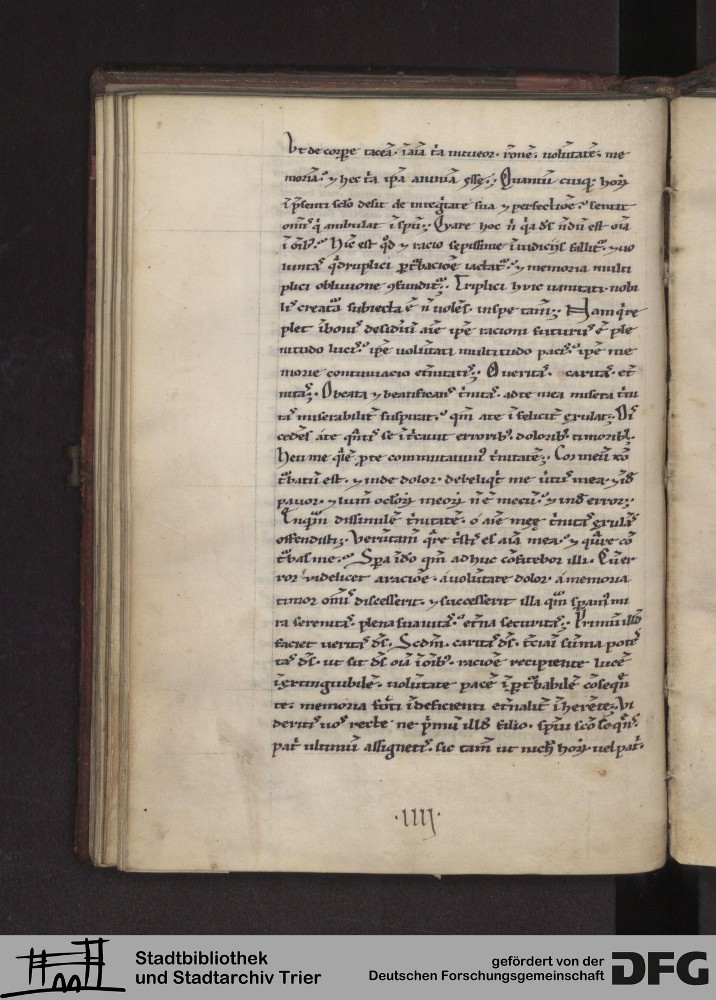 Vt de corpe tacea᷃· ı᷃ aı᷃a t᷑a intueor· ro᷃ne᷃· uolu᷃tate᷃· me
moria᷃· ⁊ hec t᷑a ip᷃a anima᷃ e᷃ee᷃· Quantu᷃ cuiq; hoꝝ
i᷃ p᷃senti sc᷃lo desit de integ᷑tate sua ⁊ perfectio᷃e· sentit
om᷃is q᷑ ambulat i᷃ sp᷃u· Quare hoc n᷑ q᷑a d᷃s n᷃du᷃ est o᷃ia
i᷃ o᷃ib;· Hic est q᷃d ⁊ racio sepissime i᷃ iudiciis fallit᷑· ⁊ uo
lunta᷃s q᷑druplici p̱t᷑bacio᷃e iactat᷑· ⁊ memoria multi
plici obliuione ꝯfundit᷑· Triplici huic uanitati nobi
lis creatu᷑a subiecta e᷃ n᷑ uole᷃s· in spe tam᷃· Nam q᷑ re
plet i᷃ bonis desid᷑iu᷃ ai᷃e ip᷃e racioni futurus e᷃ ple
nitudo lucis· ip᷃e uolu᷃tati multitudo pacis· ip᷃e me
morie continuacio et᷑nitatis· O ueritas· caritas· et᷑
nitas· O beata ⁊ beatificans t᷑nitas· ad te mea misera t᷑ni
tas miserabilit᷑ suspirat· q᷃m a te i᷃felicit᷑ exulat· Dis
cede᷃s a te q᷃ntis se i᷃t᷑cauit erroribꝫ· doloribꝫ timoribꝫ·
Heu me q᷑le᷃ p̱ te commutauimus t᷑nitate᷃· Cor meu᷃ ꝯ
t᷑batu᷃ est· ⁊ inde dolor· dereliqt᷑ me uirtus mea· ⁊ i᷃de
pauor· ⁊ lum᷃ oc᷃loꝝ meoꝝ n᷑ e᷃ mecu᷃· ⁊ inde error·
En q᷃m dissimile᷃ t᷑nitate᷃· o ai᷃e mee t᷑nitas exula᷃s
offendisti· Veru᷃tam᷃ q᷑re t᷑stis es ai᷃a mea· ⁊ qu᷑re co᷃
t᷑bas me· Sp᷑a i᷃ d᷃o q᷃m adhuc co᷃fitebor illi· Cu᷃ er
ror uidelicet a racio᷃e· a uolu᷃tate dolor· a memoria
timor om᷃is discesserit· ⁊ successerit illa qua᷃ sp᷑amus mi
ra serenitas· plena suauitas· et᷑na securitas· Primu᷃ illd᷃
faciet ueritas d᷃s· Sc᷃dm᷃· caritas d᷃s· t᷑ciu᷃ su᷃ma potes
tas d᷃s· ut sit d᷃s o᷃ia i᷃ o᷃ibꝫ· racio᷃e recipiente luce᷃
i᷃extinguibile᷃· uolu᷃tate pace᷃ i᷃p̱t᷑babile᷃ co᷃sequen
te· memoria fonti i᷃deficienti et᷑nalit᷑ i᷃here᷃te· Vi
deritis uos recte ne p᷑mu᷃ illd᷃ filio· sp᷃ui sc᷃o seque᷃s·
pat᷑ ultimu᷃ assignetis· sic tam᷃ ut nichil hoꝝ uel pat᷑·
·IIIJ·
Stadtbibliothek
und Stadtarchiv Trier
gefördert von der
Deutschen Forschungsgemeinschaft
DFG